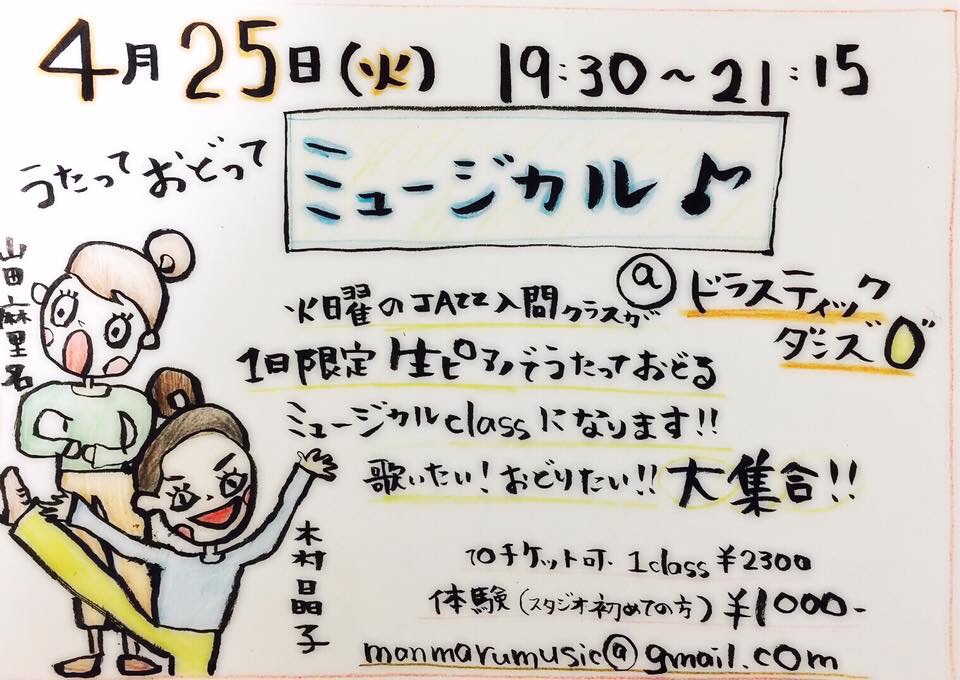 4月25日(火) 19:30~21:15
うたっておどって
ミュージカル♪
@ドラスティック
ダンス"0"
火曜のJAzz入門クラスが
1日限定 生ピアノでうたっておどる
ミュージカルclassになります!!
歌いたい!おどりたい!! 大集合!!
チケット可. 1class ¥2300
体験(スタジオ初めての方) ¥1000-
manmarumusic@gmail.com
山田麻里名
木村晶子